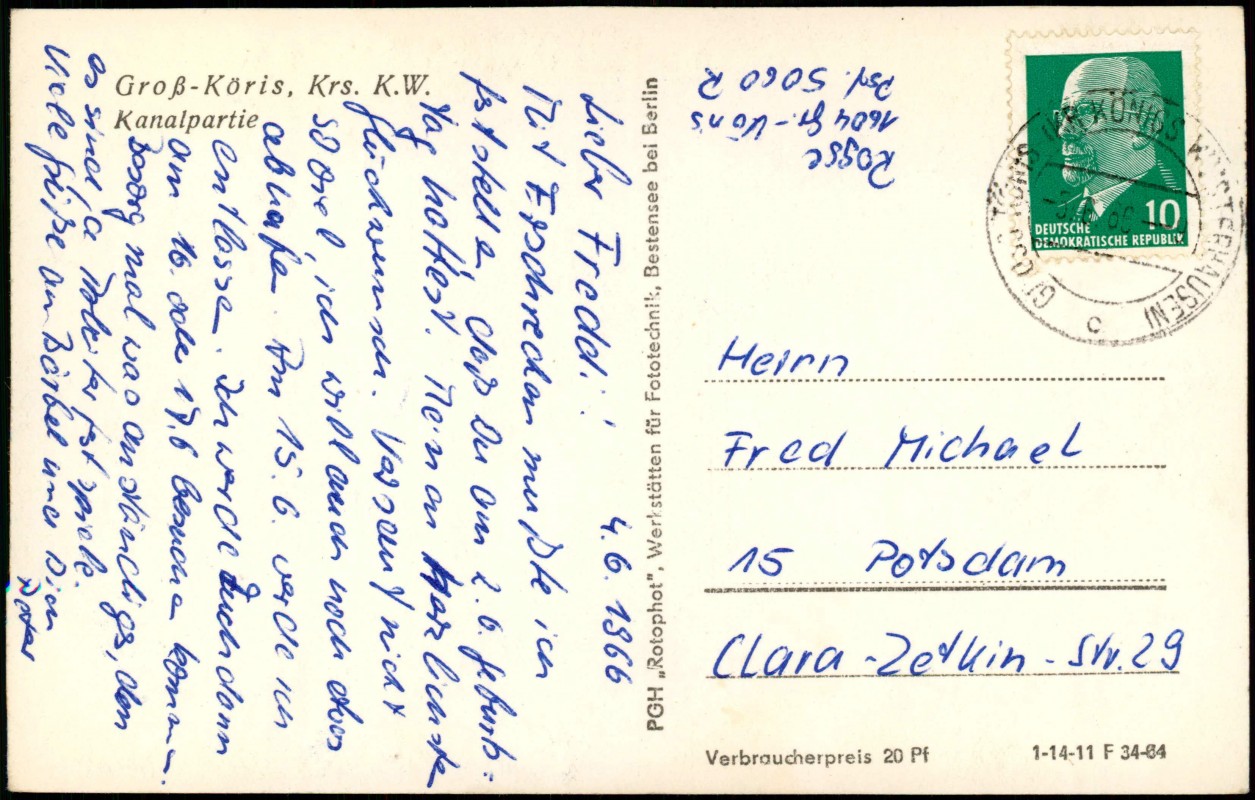 Groß-Köris, Krs. K.W.
Kanalpartie
4.6.1966
Lieber Freddi!
Mit Erschrecken mußte ich
feststellen, daß Du am 2.6. Geburts=
tag hattest. Meinen herzlichsten
Glückwunsch. Versauf nicht
soviel, ich will auch noch etwas
abhaben. Am 15.6. werde ich
entlassen. Ich werde Euch dann
am 16. oder 17.6 besuchen kommen.
Besorg mal was anständiges, denn
es sind ja
Viele Grüße an Bärbel und Dich
Peter
PGH „Rotophot", Werkstätten für Fototechnik, Bestensee bei Berlin
Rogge
1604 Gr.-Köris
Psf. 5060 R
10
DEUTSCHE
DEMOKRATISCHE REPUBLIK
GROSS KÖRIS (KR. KÖNIGS WUSTERHAUSEN)
Herrn
Fred Michael
15 Potsdam
Clara-Zetkin-Str. 29
Verbraucherpreis 20 Pf
1-14-11 F 34-64